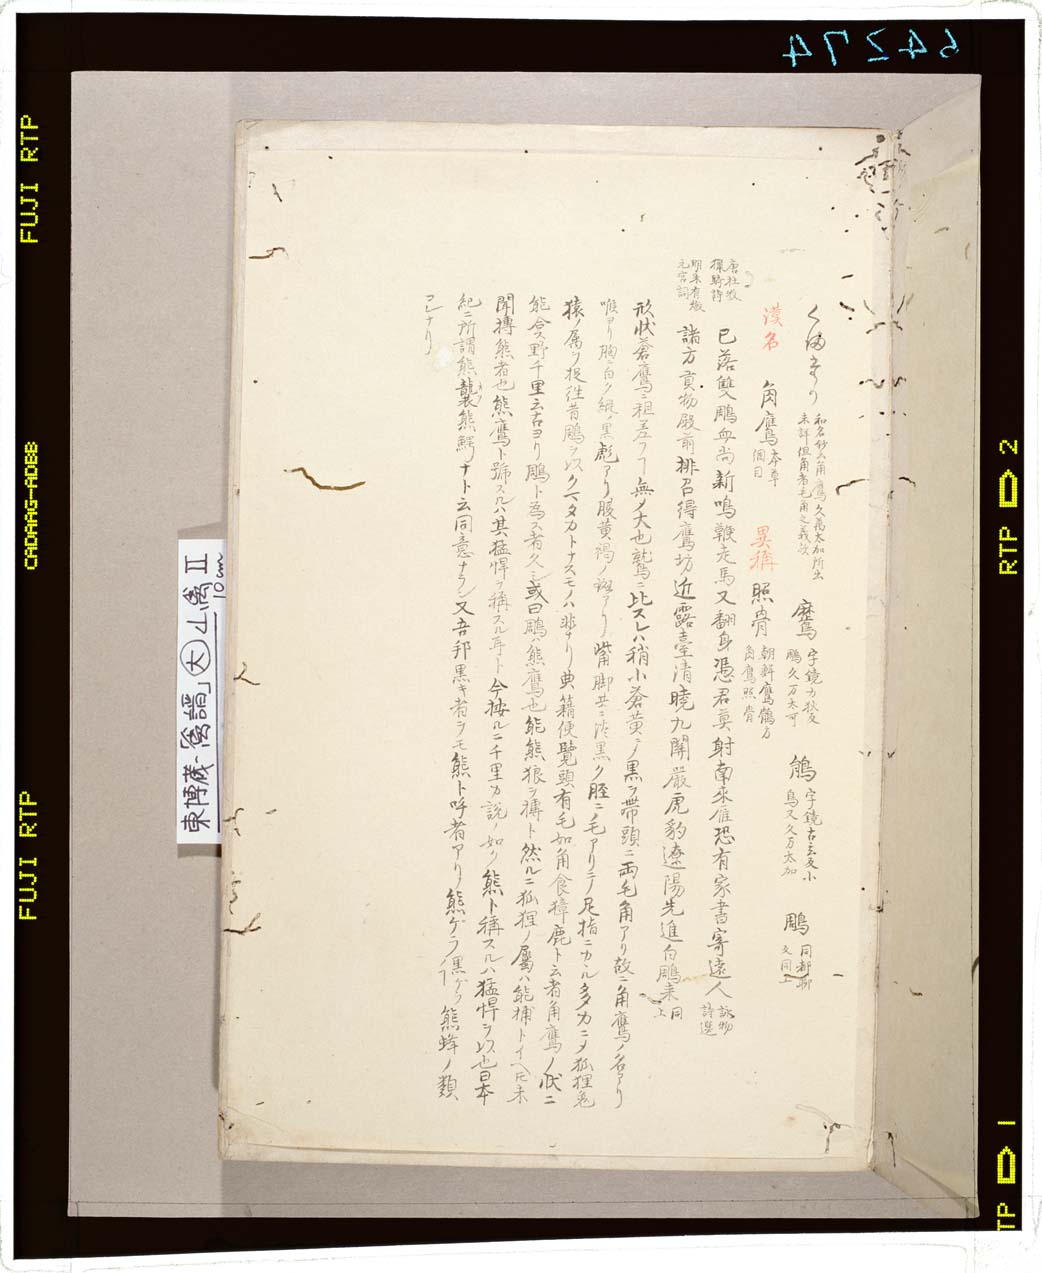 64274
FUJI RTP
CADAAG-ADBB
FUJI RTP
RTP 2
RTP 1
東博蔵「禽譜」大 山禽 II
10cm
くまたか 和名鈔云角鷹久萬太加所出
未詳但角者毛角之義欤
鷹 字鏡
鵰久万太可
鵃 字鏡古玄反小
鳥又久万太加
鵰 同都聊
反同上
漢名 角鷹 本草
綱目
異稱 照骨 朝鮮鷹鶻方
角鷹照骨
唐杜牧
已落雙鵰血尚新鳴鞭走馬又翻身憑君莫射南來雁恐有家書寄遠人 詠物
詩選
明朱有燉
元宮詞
諸方貢物殿前排召得鷹坊近露臺清曉九關嚴虎豹遼陽先進白鵰來 同
上
形状蒼鷹ニ粗差フ無メ大也鷲ニ比スレハ稍小蒼黄ニノ黒ヲ帯頭ニ両毛角アリ故ニ角鷹ノ名アリ
喉ヨリ胸白ク縦ノ黒彪アリ腹黄褐ノ斑アリ觜脚共ニ淡黒ク脛ニ毛アリテ足指ニカル多力ニメ狐狸兎
猿ノ属ヲ捉往昔鵰ヲ以クマタカトナスモノハ非ナリ典籍便覽頭有毛如角食獐鹿ト云者角鷹ノ状ニ
能合ス野千里云古ヨリ鵰ト為ス者久シ或曰鵰ハ熊鷹也能熊狼ヲ搏ト然ルニ狐狸ノ屬ハ能捕トイヘ𪜈未
聞搏熊者也熊鷹ト號スルハ其猛悍ヲ稱スル耳ト今按ルニ千里カ説ノ如ク熊ト稱スルハ猛悍ヲ以也日本
紀ニ所謂熊襲熊鰐ナト云同意ナラン又吾邦黒キ者ヲモ熊ト呼者アリ熊ゲラ熊蜂ノ類
コレナリ